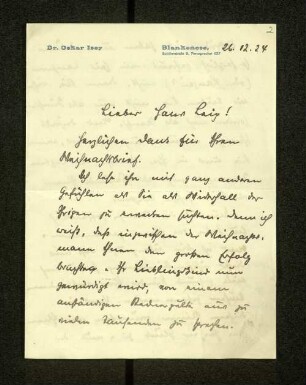 2
Dr. Oskar Iser
Blankenese,
26.12.24
Lieber Hans Leip!
Herzlichen Dank für Ihren
Weihnachtsbrief.
Ich lese ihn mit ganz anderen
Gefühlen als Sie als Widerhall der
Ihrigen zu erwarten, denn ich
weiß, daß inzwischen der Weihnachts-
mann Ihnen den großen Erfolg
brachte. Ihr Lieblingskind nun
gewürdigt wird, von einem
anständigen Rednerpult aus zu
vielen Tausenden zu sprechen.